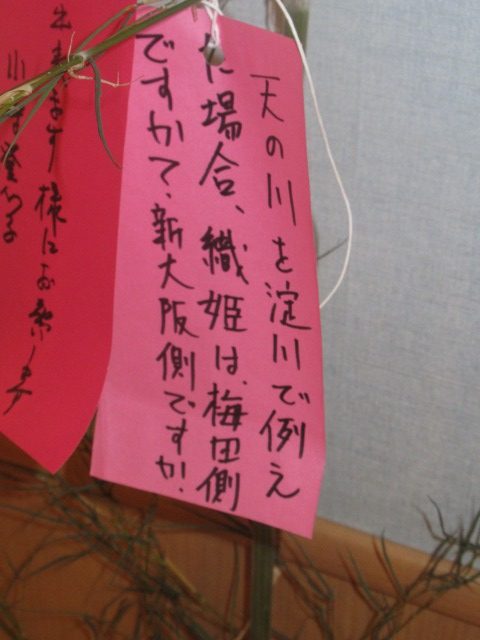 天の川を淀川で例え
た場合、織姫は、梅田側
ですか?、新大阪側ですか?
出来ます様にお祈り